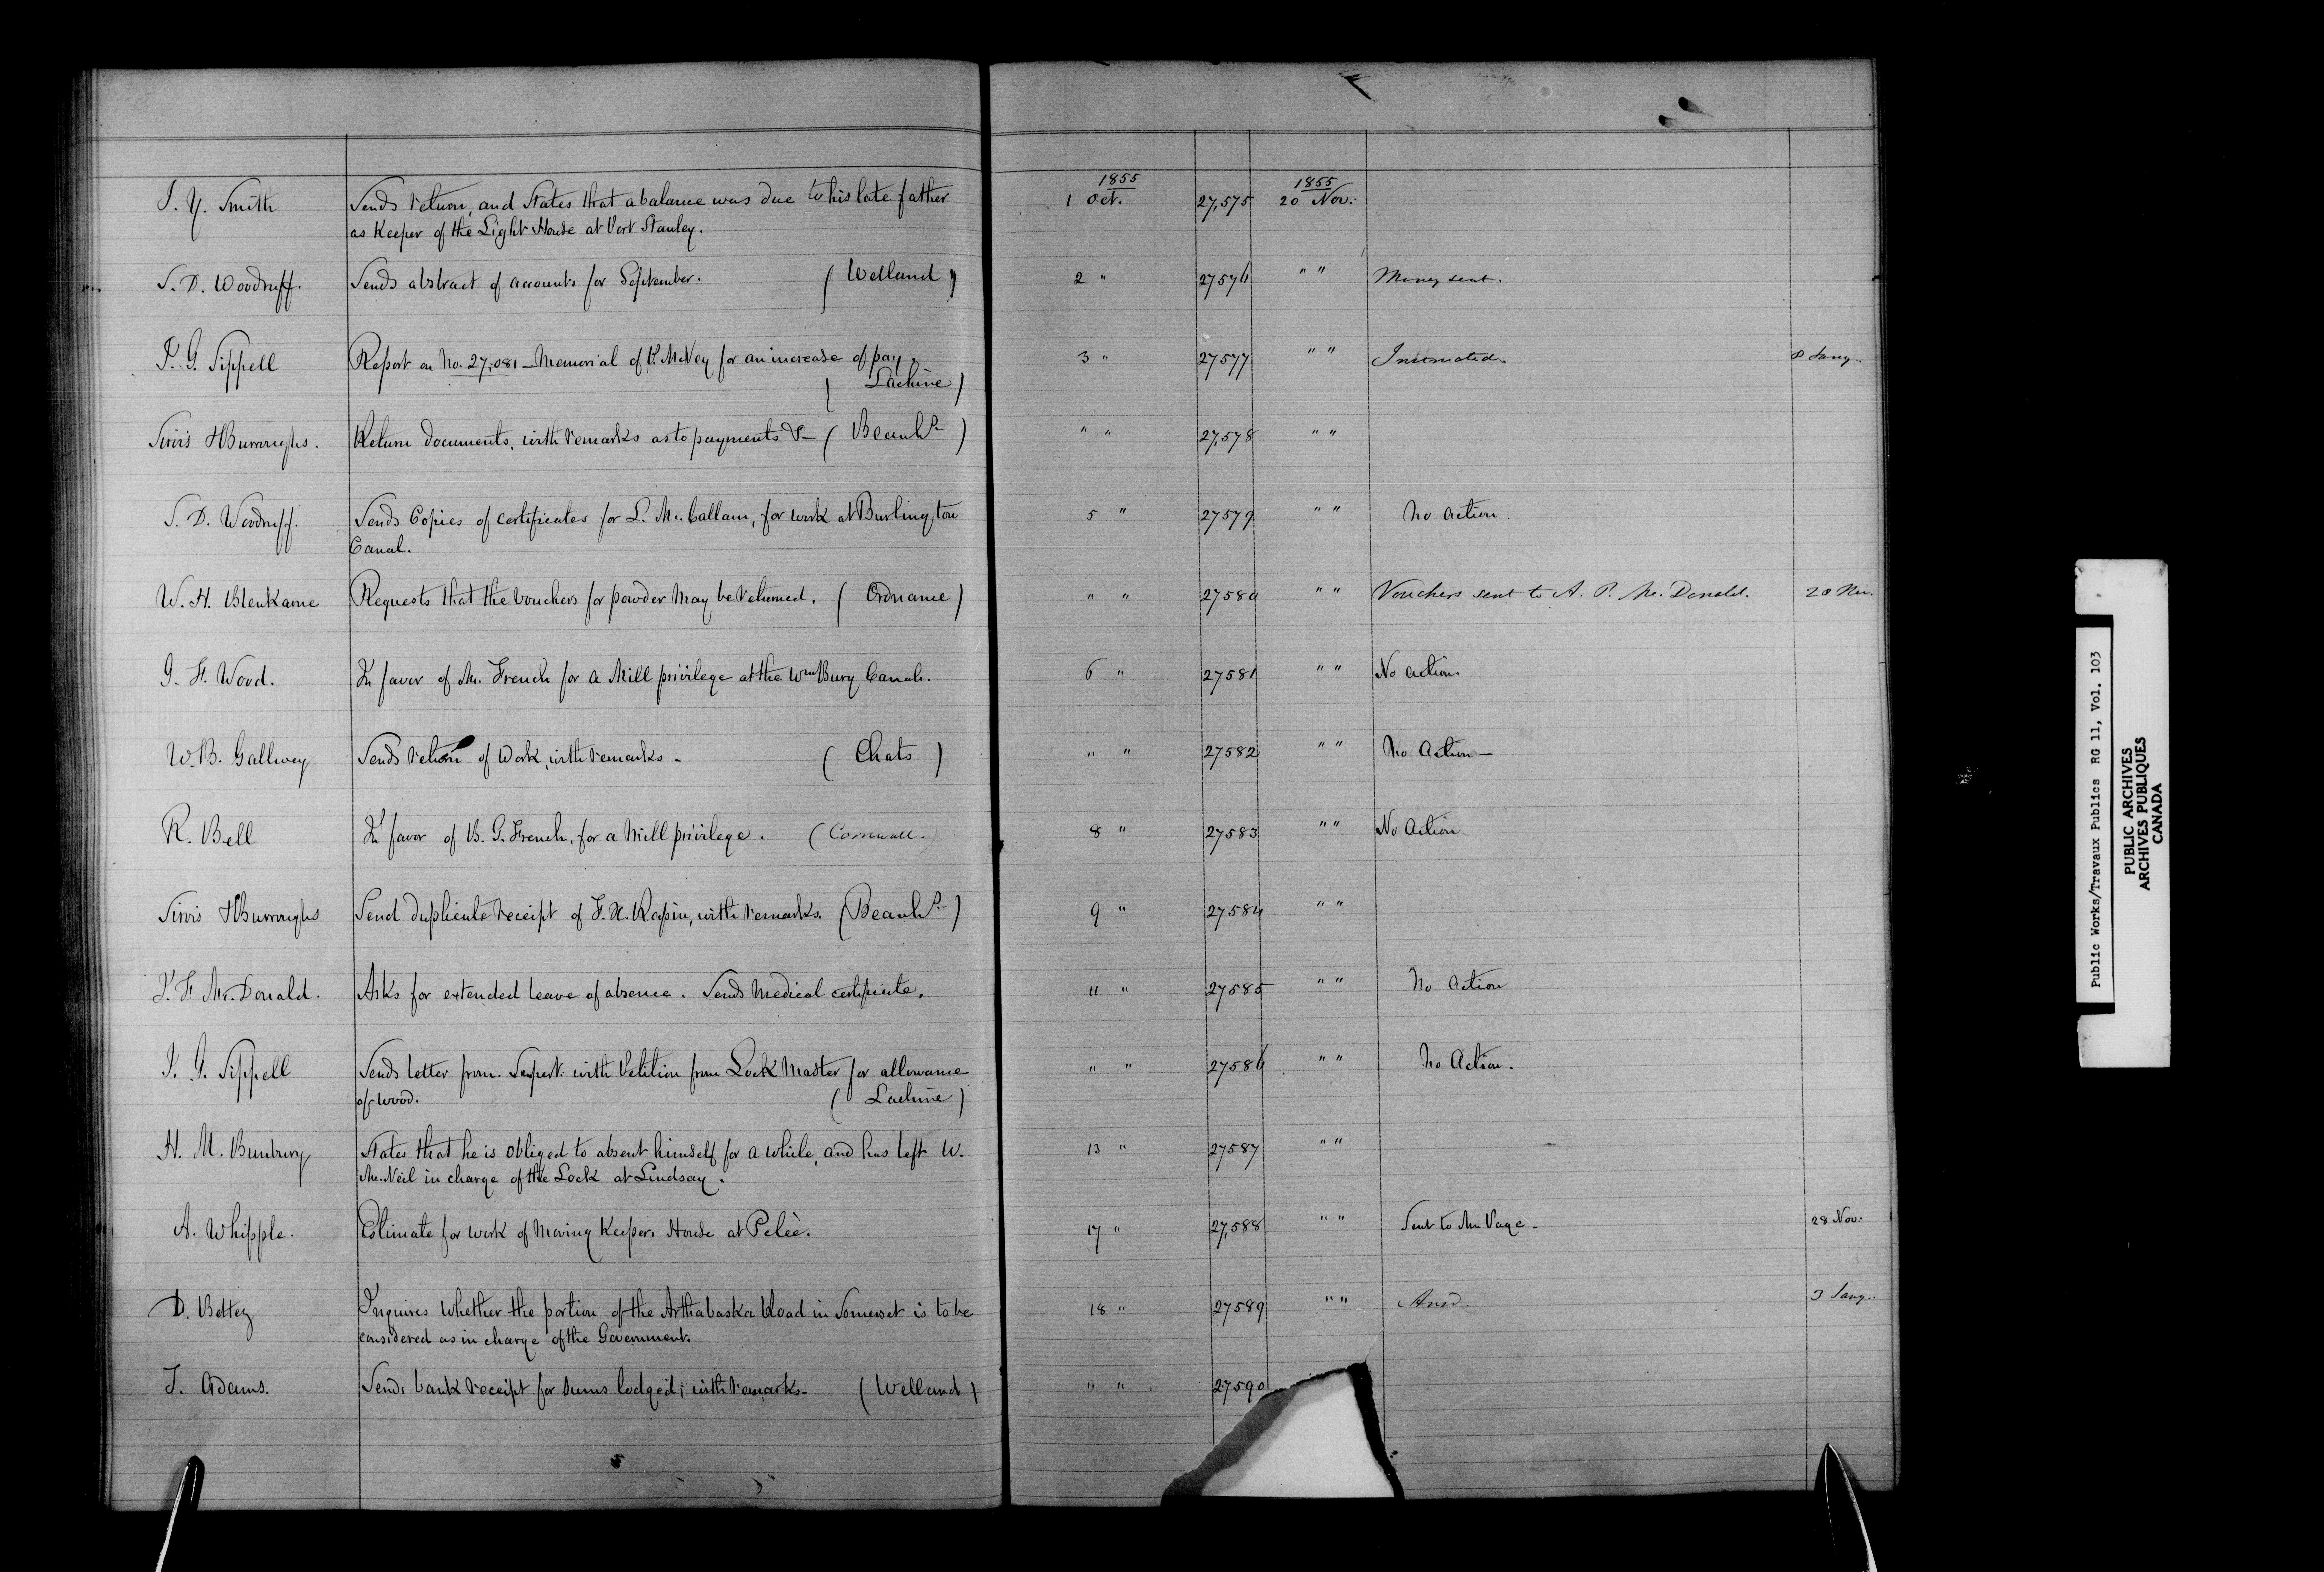 1855 1855
J. Y. Smith Sends return, and States that a balance was due to his late father 1 Oct. 27,575 20 Nov.
as Keeper of the Light House at Port Stanley.
S. D. Woodruff. Sends abstract of accounts for September. (Welland) 2 " 27576 " " Money sent.
J. G. Sippell Report on No. 27,081 – Memorial of P. McVey for an increase of pay. 3 " 27577 " " 8 Jany.
(Lachine)
H Burroughs. Return documents, with remarks as to payments &– (Beauhs.) " " 27,578 " "
S. D. Woodruff. Sends Copies of certificates for L. Mc.Callam, for work at Burlington 5 " 27579 " " No action.
Canal.
W. H. Blenkarne Requests that the vouchers for powder may be returned. (Ordnance) " " 27580 " " Vouchers sent to A. P. Mc.Donald. 28 Nov.
G. H. Wood. In favor of Mr. French for a Mill privilege at the Wmsburg Canal. 6 " 27581 " " No action.
W. B. Gallwey Sends return of Work, with remarks – (Chats) " " 27582 " " No Action –
R. Bell In favor of B. G. French, for a Mill privilege. (Cornwall.) 8 " 27583 " " No Action
H Burroughs Send duplicate receipt of F. X. Rapin, with remarks. (Beauhs.) 9 " 27584 " "
Mc.Donald. Asks for extended leave of absence. Sends Medical certificate. 11 " 27585 " " No Action
J. G. Sippell Sends letter from Supert. with Petition from Lock Master for allowance " " 27586 " " No Action.
of wood. (Lachine)
H. M. Bunbury States that he is obliged to absent himself for a while, and has left W. 13 " 27587 " "
Mc.Neil in charge of the Lock at Lindsay.
A. Whipple. Estimate for work of Moving Keepers House at Peleè. 17 " 27,588 " " Sent to Mr. Page. 28 Nov.
D. Bettez Inquires whether the portion of the Arthabaska Road in Somerset is to be 18 " 27589 " " Ansd. 3 Jany.
considered as in charge of the Government.
J. Adams. Sends bank receipt for sums lodged; with remarks – (Welland) " " 27590
Public Works/Travaux Publics RG 11, Vol. 103
PUBLIC ARCHIVES
ARCHIVES PUBLIQUES
CANADA